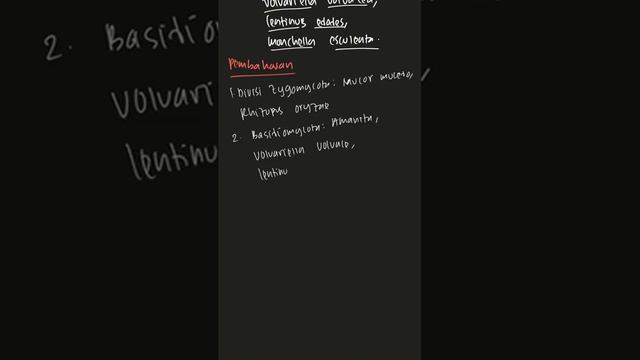 volvariella volvacea,
lentinus edodes,
morchella esculenta.
Pembahasan
1. Divisi Zygomycota: Mucor mucedo,
Rhizopus oryzae
2. Basidiomycota: Amanita,
volvariella volvace,
lentinu
2. Basidiom
volvariel
lentinu